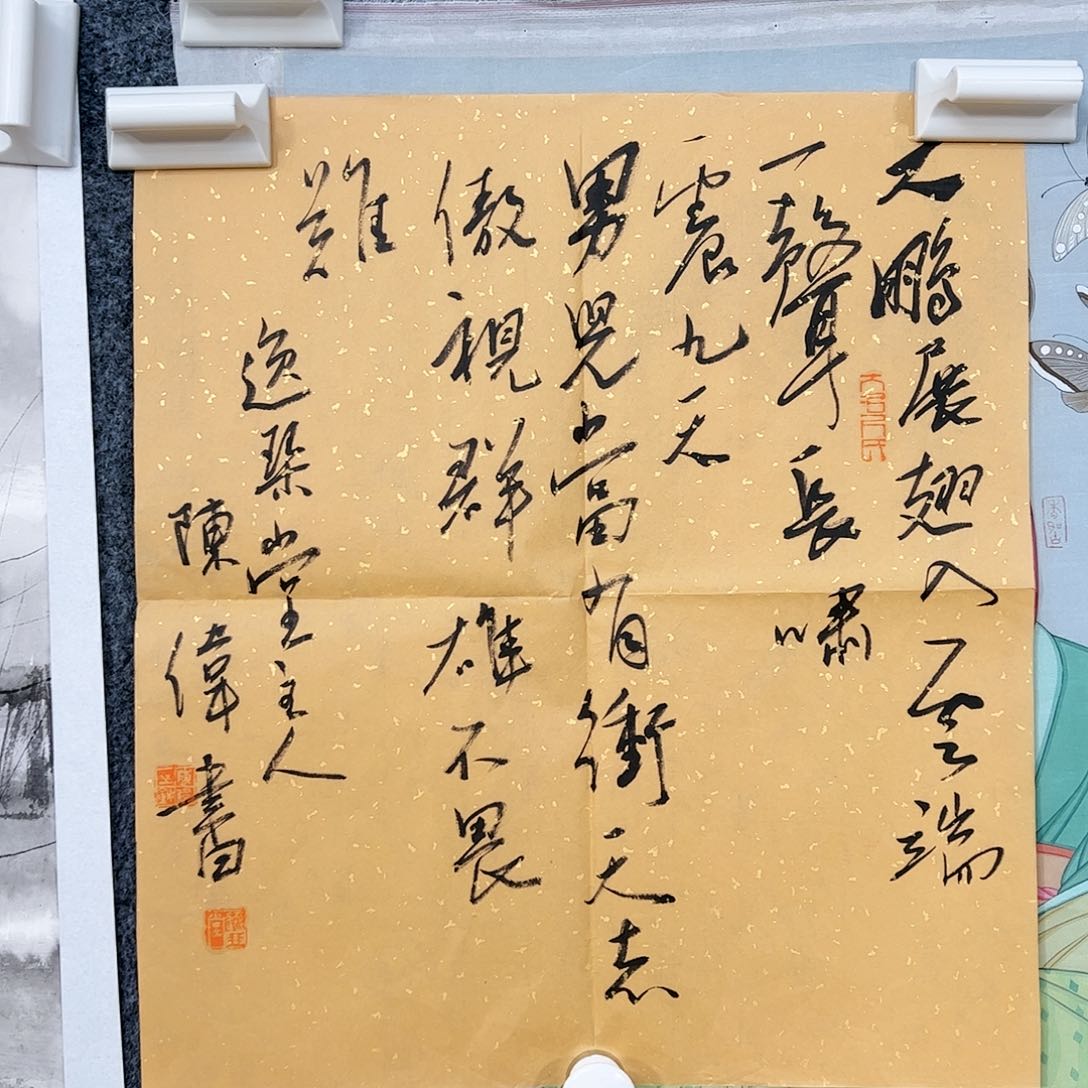 大鵬展翅入雲端
一聲長嘯
震九天
男兒當有衝天志
傲視群雄不畏
難
逸琴堂主人
陳偉書